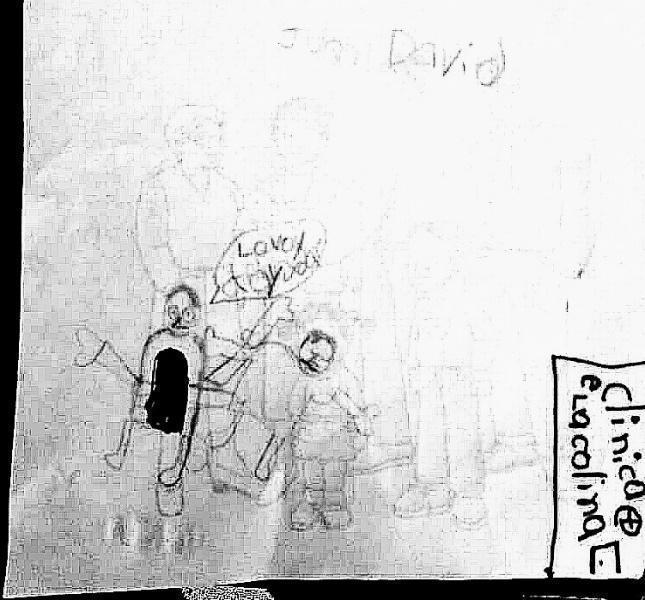 Juan David
Lavoy
a ayudar
Clinica ⊕
eLacolina